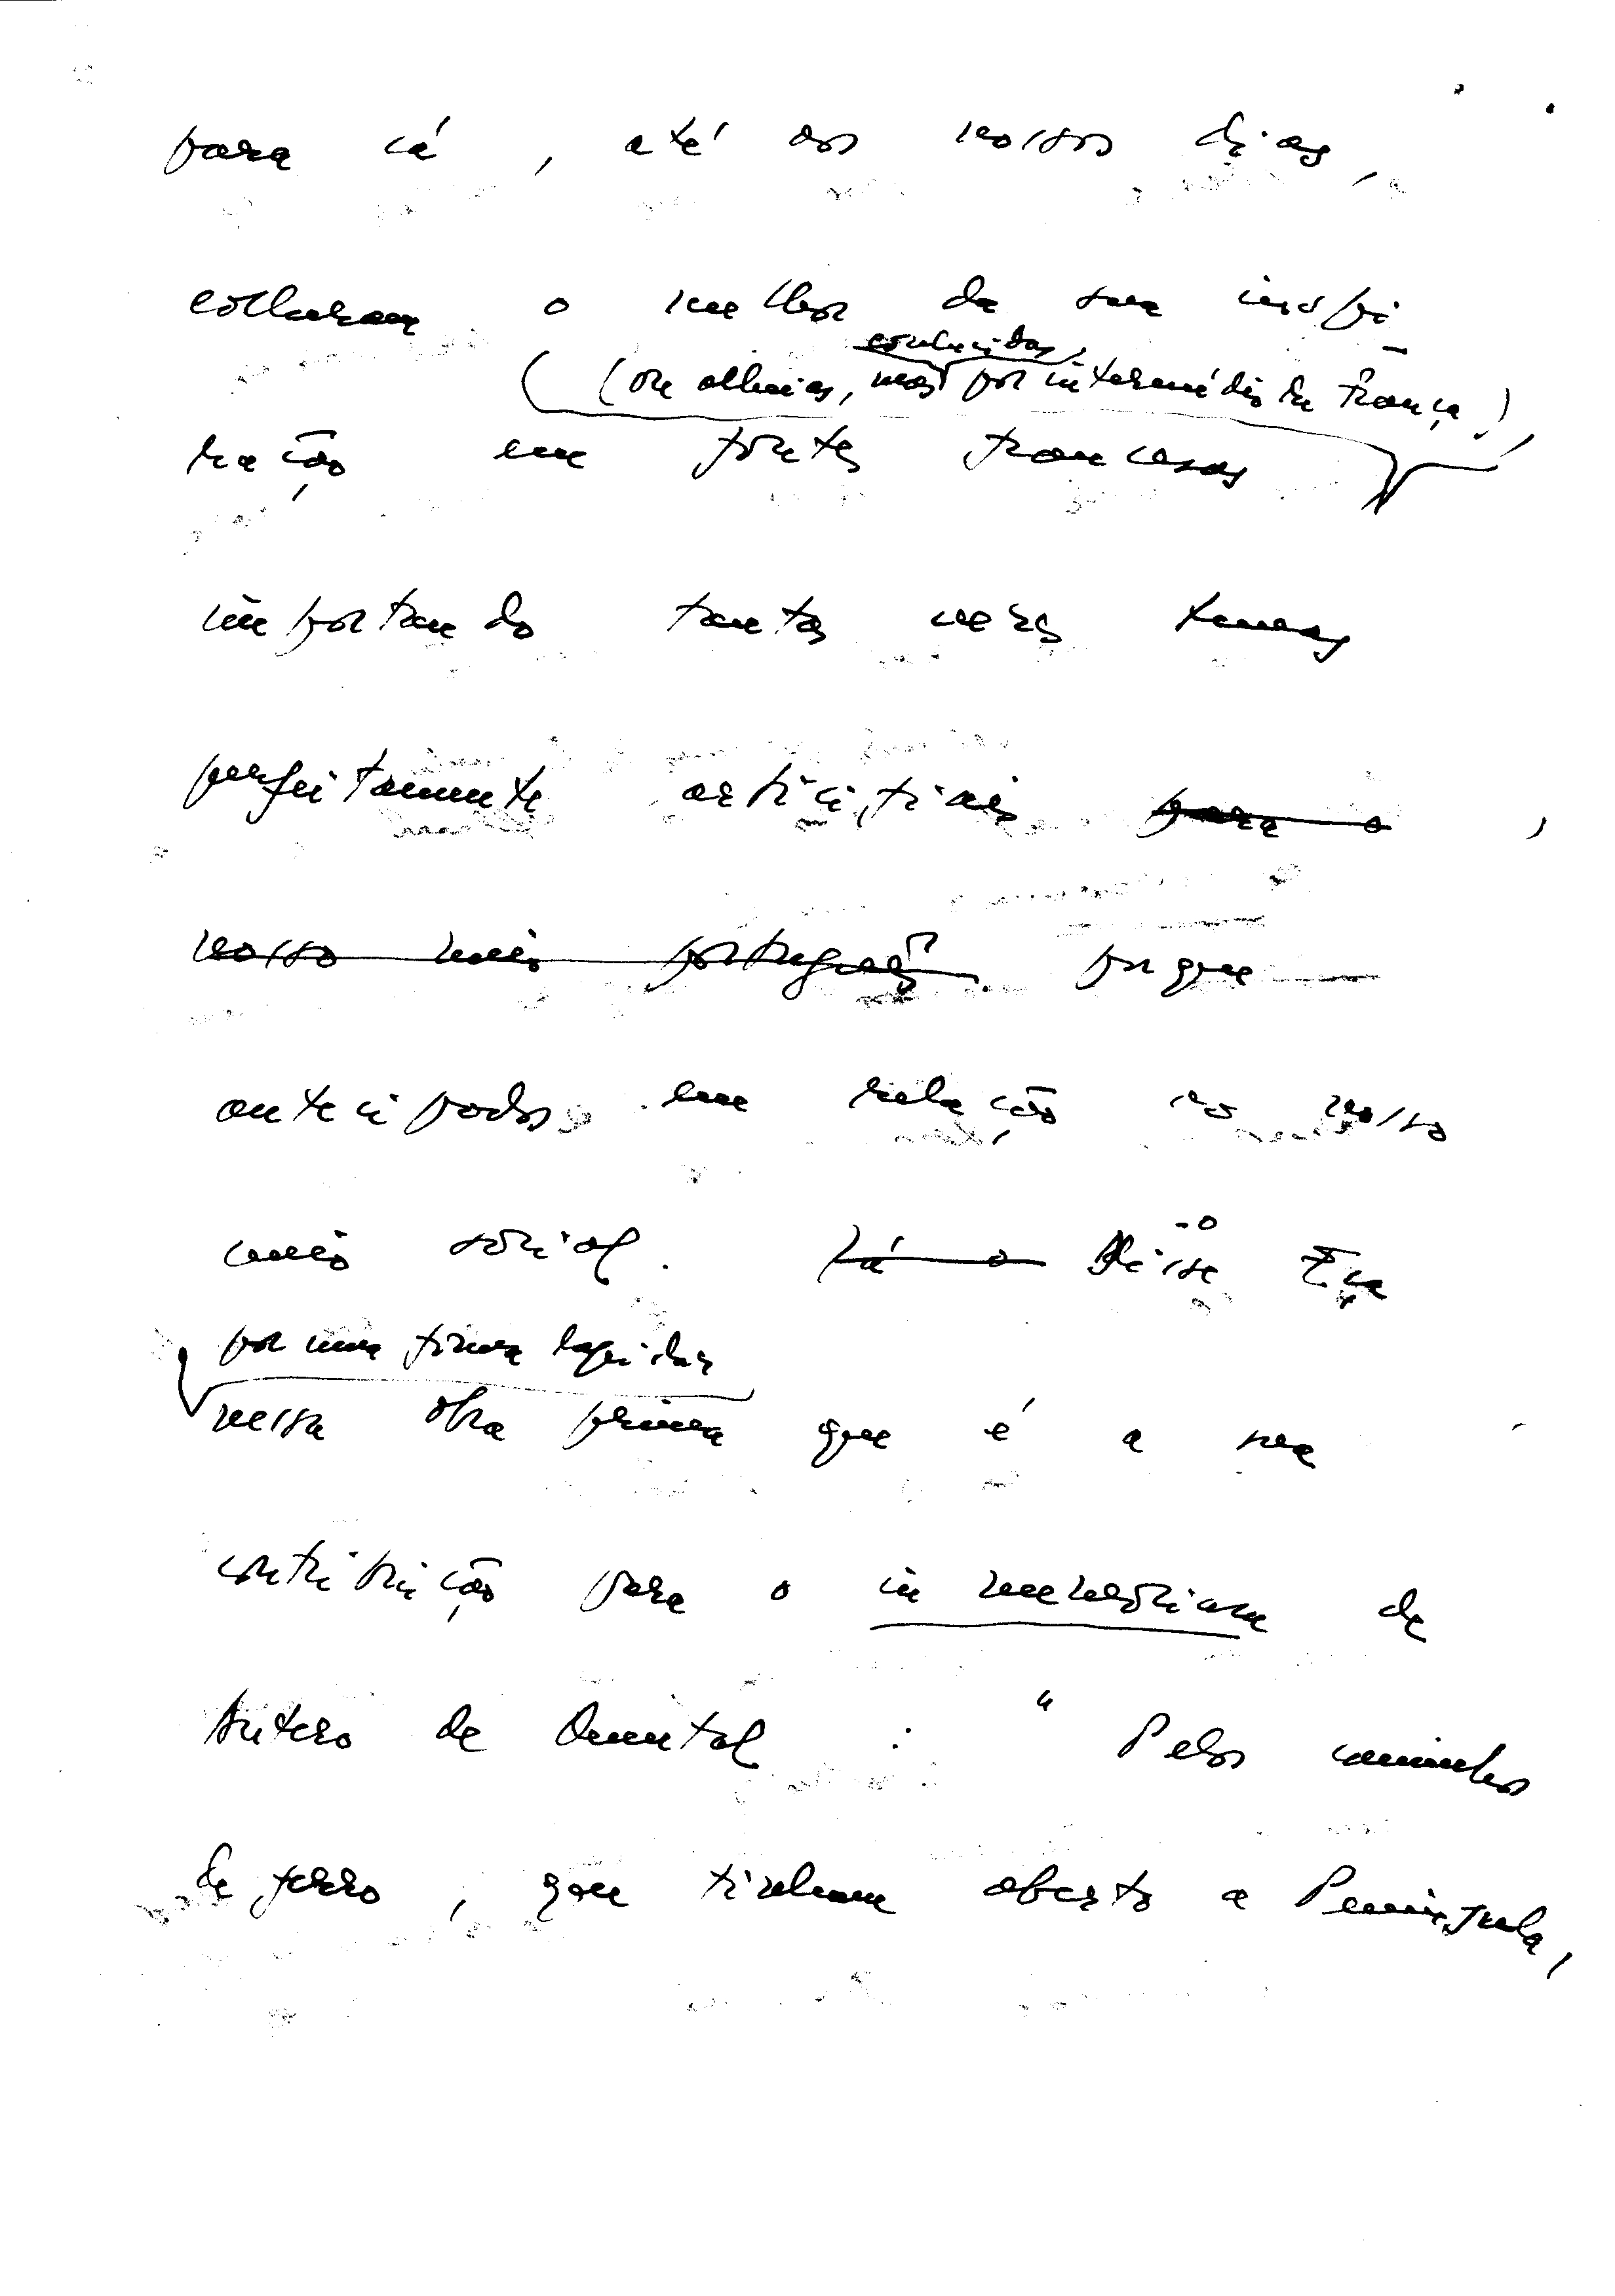 para cá, até aos nossos dias,
colheram o melhor da sua inspi-
conhecidas,
(ou alheias, mas por intermédio da França),
ração em fontes francesas
importando tantas vezes temas
perfeitamente artificiais para o,
nosso meio português porque
antecipados em relação ao nosso
meio social. Lá o Disse-o Eça
por uma forma lapidar
nessa obra prima que é a sua
contribuição para o in memoriam de
Antero de Quental: "Pelos caminhos
de ferro, que tinham aberto a Península,